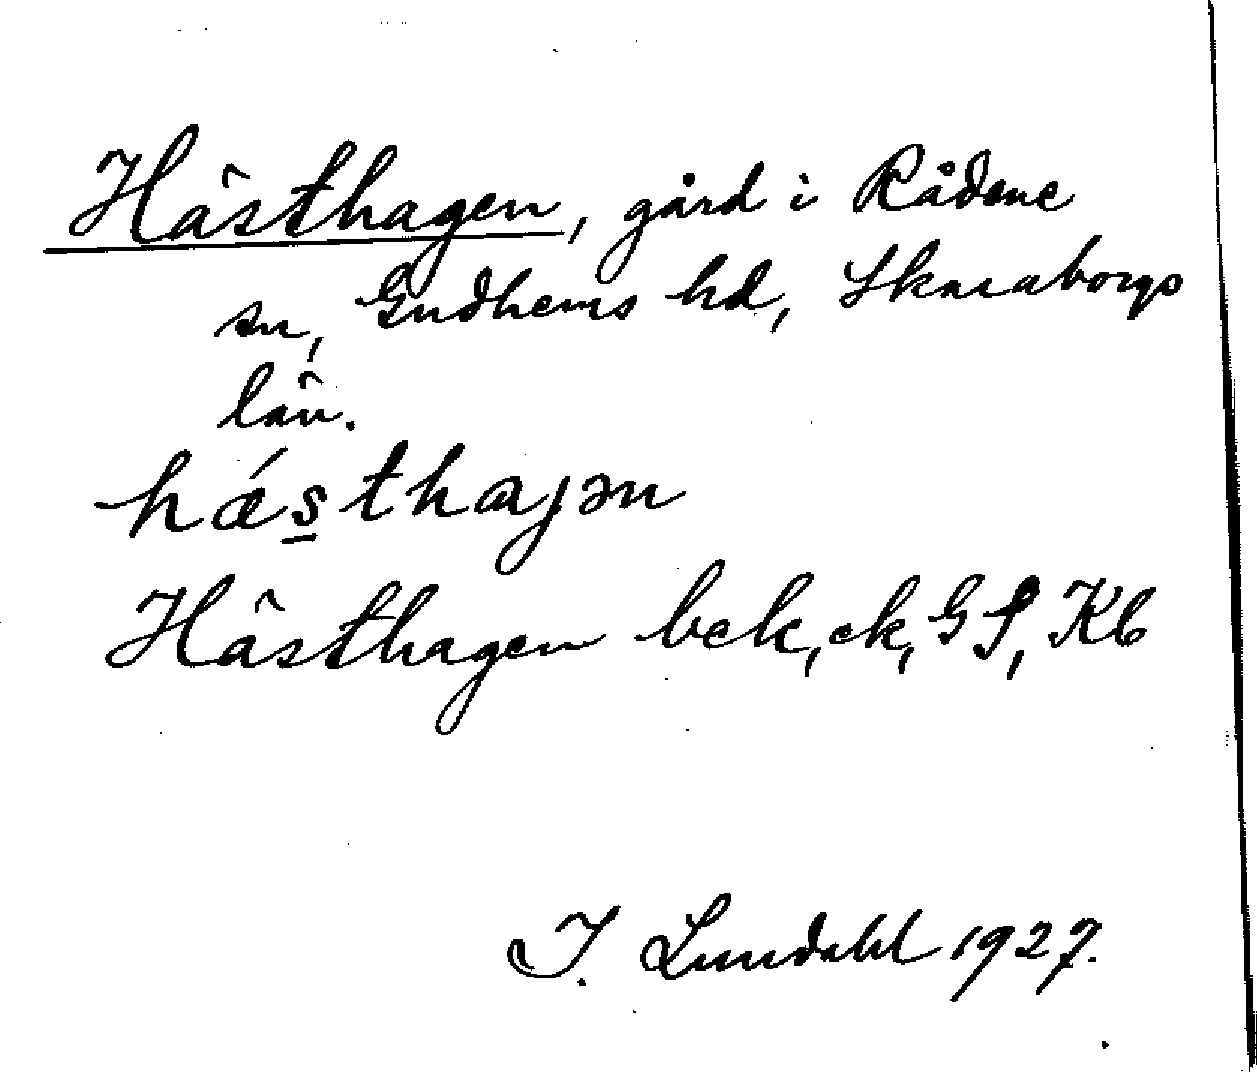 Hästhagen, gård i Rådene
sn, Gudhems hd, Skaraborgs
län.
hǽs̲thaȷən
Hästhagen bek, ek, GS, Kb
I. Lundahl 1927.